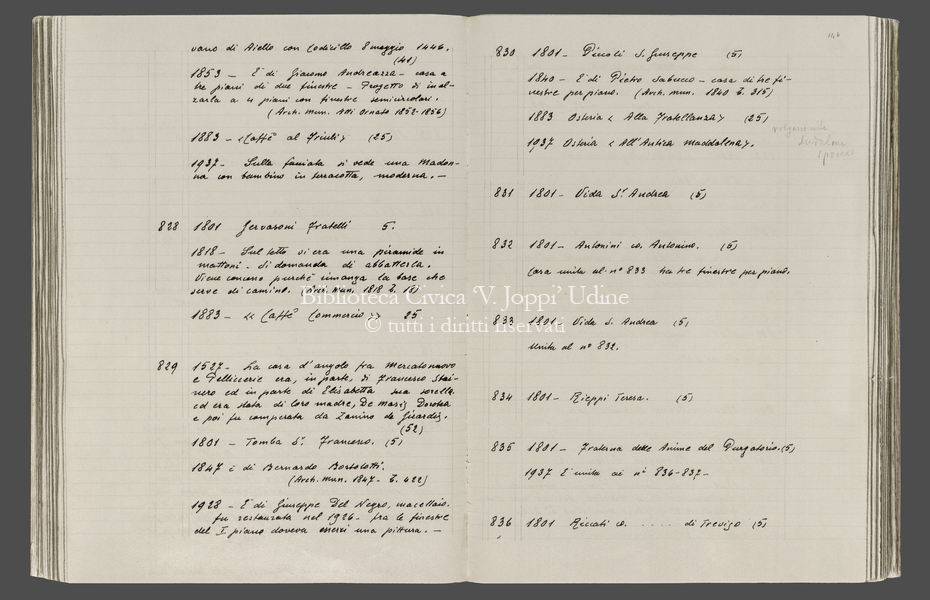 vano di Aiello con Codicillo 8 maggio 1446.
(41)
1853 – È di Giacomo Andreazza – casa a
tre piani di due finestre – Progetto di inal-
zarla a 4 piani con finestre semicircolari.
(Arch. Mun. Atti Ornato 1852-1856)
1883 – «Caffè al Friuli» (25)
1937 – Sulla facciata si vede una Madon-
na con bambino in terracotta, moderna. –
828 1801 Gervasoni Fratelli 5.
1818 – Sul tetto vi era una piramide in
mattoni. Si domanda di abbatterla.
Viene concesso purché rimanga la base che
serve di camino. (Arch. Mun. 1818 b. 18)
1883 – «Caffè Commercio» 25
829 1527 – La casa d'angolo fra Mercatonuovo
e Pellicerie era, in parte, di Francesco Stai-
nero ed in parte di Elisabetta sua sorella,
ed era stata di loro madre, De Masiis Dorotea
e poi fu comperata da Zanino de Girardis.
(52)
1801 – Tomba Sr. Francesco. (5)
1847 è di Bernardo Bortolotti.
(Arch. Mun. 1847 – b. 422)
1928 – È di Giuseppe Del Negro, macellaio.
fu restaurata nel 1926 – fra le finestre
del I piano doveva esservi una pittura. –
830 1801 – Dincli S. Giuseppe (5)
1840 – È di Pietro Sabucco – casa di tre fi-
nestre per piano. (Arch. Mun. 1840 b. 315)
1883 Osteria «Alla Fratellanza» (25)
1937 Osteria «All'Antica Maddalena».
831 1801 – Vida Sr. Andrea (5)
832 1801 – Antonini co. Antonino. (5)
Casa unita al n° 833 ha tre finestre per piano.
833 1801 – Vida S. Andrea (5)
Unita al n° 832.
834 1801 – Rieppi Teresa. (5)
835 1801 – Fraterna delle Anime del Purgatorio. (5)
1937 È unita ai n° 836-837 –
836 1801 Riccati co. .... di Treviso (5)
Biblioteca Civica 'V. Joppi' Udine
© tutti i diritti riservati